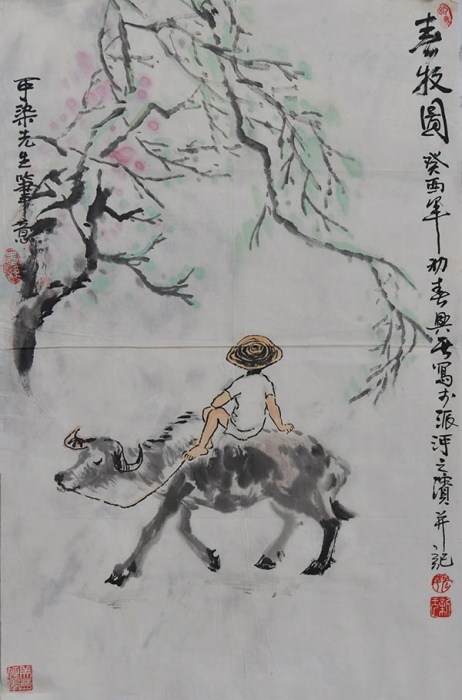 春牧圖 癸酉年初春興寫於派河之濱并記
可染先生筆意